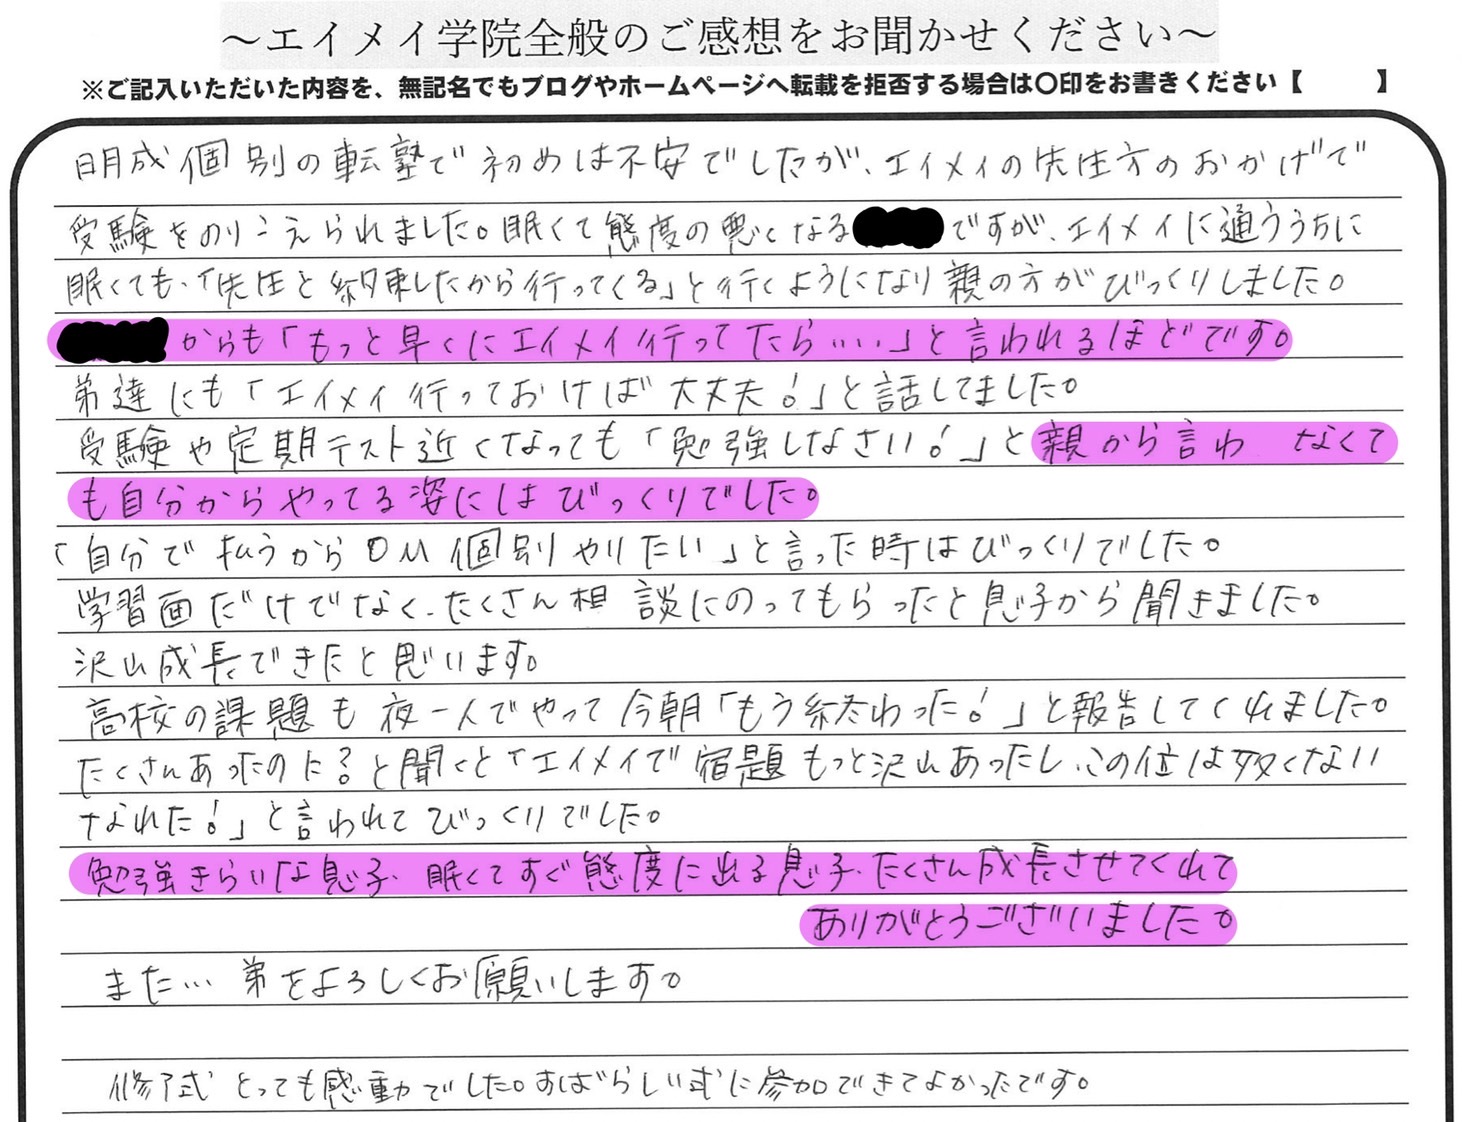 ～エイメイ学院全般のご感想をお聞かせください～
※ご記入いただいた内容を、無記名でもブログやホームページへ転載を拒否する場合は〇印をお書きください【　　】
明成個別の転塾で初めは不安でしたが、エイメイの先生方のおかげで
受験をのりこえられました。眠くて態度の悪くなるですが、エイメイに通ううちに
眠くても、「先生と約束したから行ってくる」と行くようになり親の方がびっくりしました。
からも「もっと早くにエイメイ行ってたら‥‥」と言われるほどです。
弟達にも「エイメイ行っておけば大丈夫！」と話してました。
受験や定期テスト近くなっても「勉強しなさい！」と親から言わ なくて
も自分からやってる姿にはびっくりでした。
「自分で払うからOM個別やりたい」と言った時はびっくりでした。
学習面だけでなく、たくさん相談にのってもらったと息子から聞きました。
沢山成長できたと思います。
高校の課題も夜一人でやって今朝「もう終わった！」と報告してくれました。
たくさんあったのに？と聞くと「エイメイで宿題もっと沢山あったし、この位は多くない
なれた！」と言われてびっくりでした。
勉強きらいな息子、眠くてすぐ態度に出る息子、たくさん成長させてくれて
ありがとうございました。
また… 弟をよろしくお願いします。
修了式 とっても感動でした。すばらしい式に参加できてよかったです。